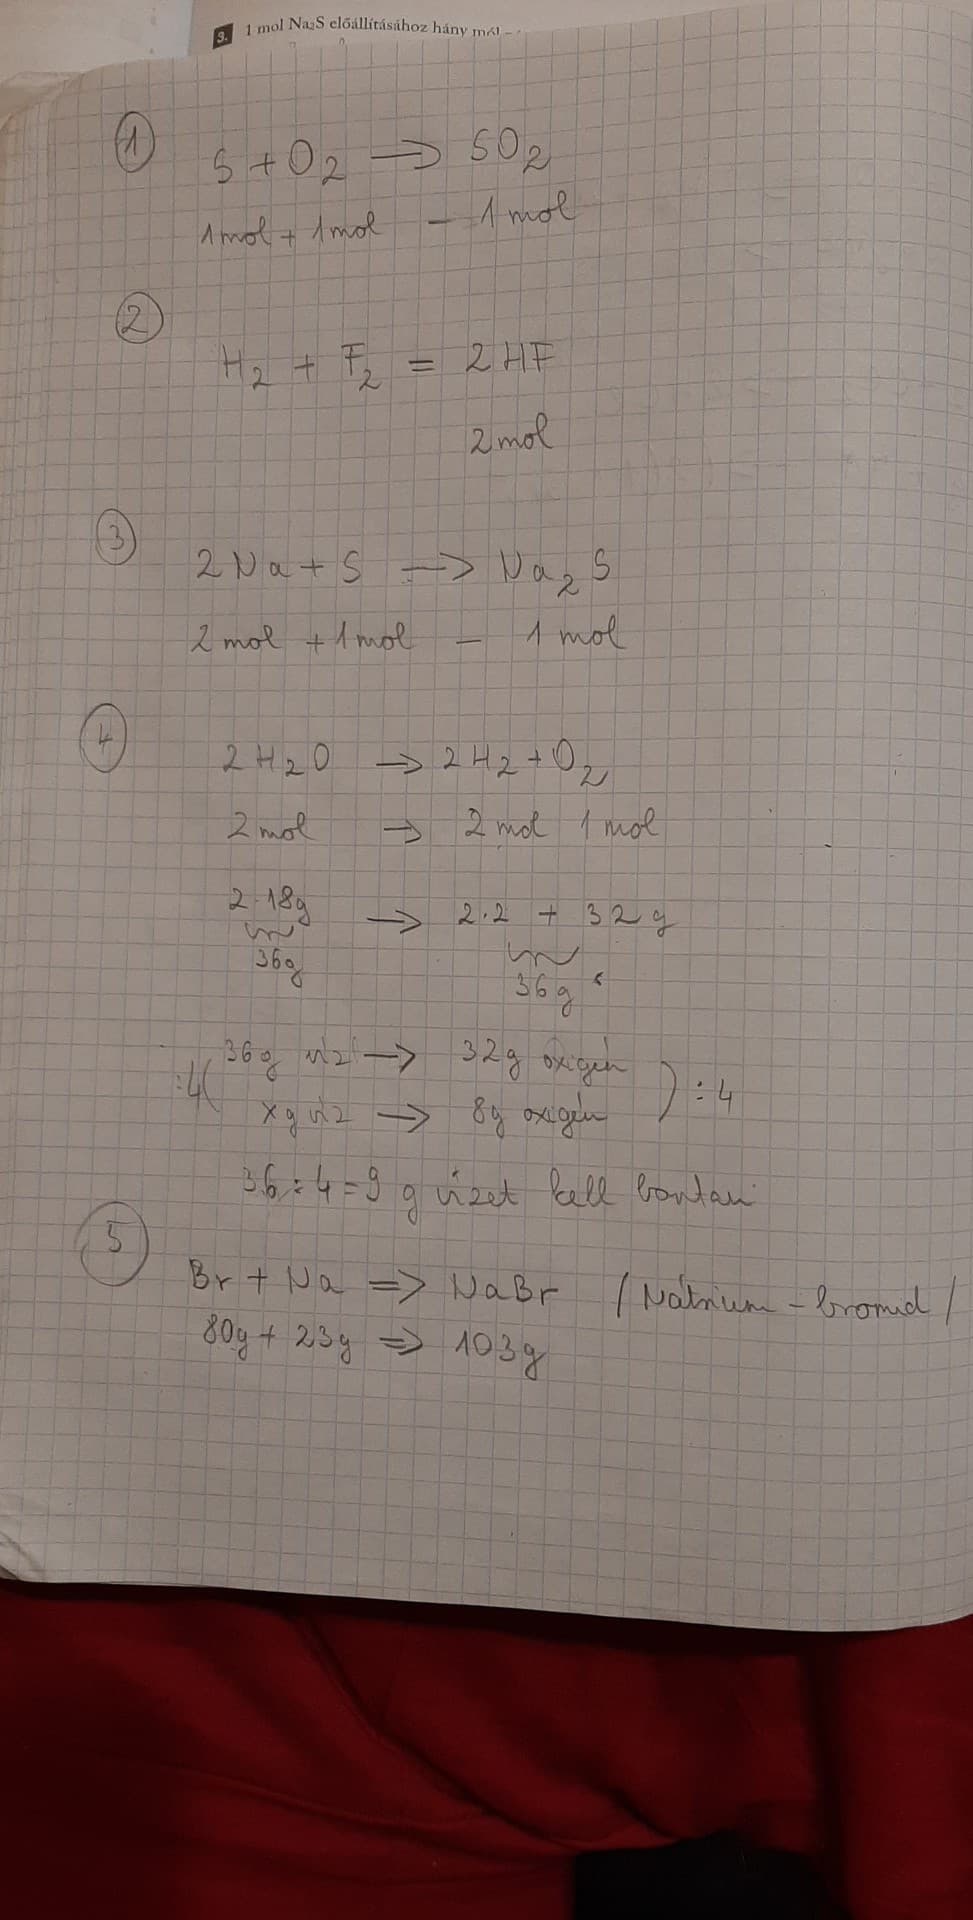 3. 1 mol Na₂S előállításához hány mól
①
S + O₂ → SO₂
1mol + 1mol - 1mol
②
H₂ + F₂ = 2HF
2mol
③
2Na + S → Na₂S
2mol + 1mol - 1mol
④
2H₂O → 2H₂ + O₂
2mol → 2mol 1mol
2·18g → 2·2 + 32g
36g 36g
:4( 36g víz → 32g oxigén ) :4
xg víz → 8g oxigén
36:4=9 g vizet kell bontani
⑤
Br + Na ⇒ NaBr /Nátrium-bromid/
80g + 23g ⇒ 103g